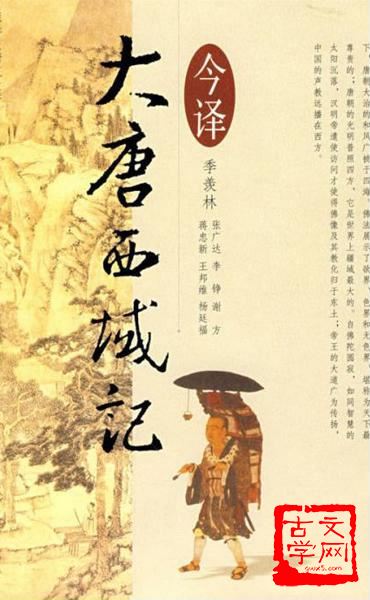 下，唐朝大治的和风广被于四海。佛法展示了欲界、色界和无色界，堪称为天下最
尊贵的；唐朝的光明普照四方，它是世界上疆域最大的。自佛陀圆寂，如同智慧的
太阳沉落，汉明帝遣使访问才使得佛像及其教化归于东土；帝王的大道广为传扬，
中国的声教远播在西方。
今译
季羡林
张广达 李铮 谢方
蒋忠新 王邦维 杨廷福
大唐西域記
古文
学网